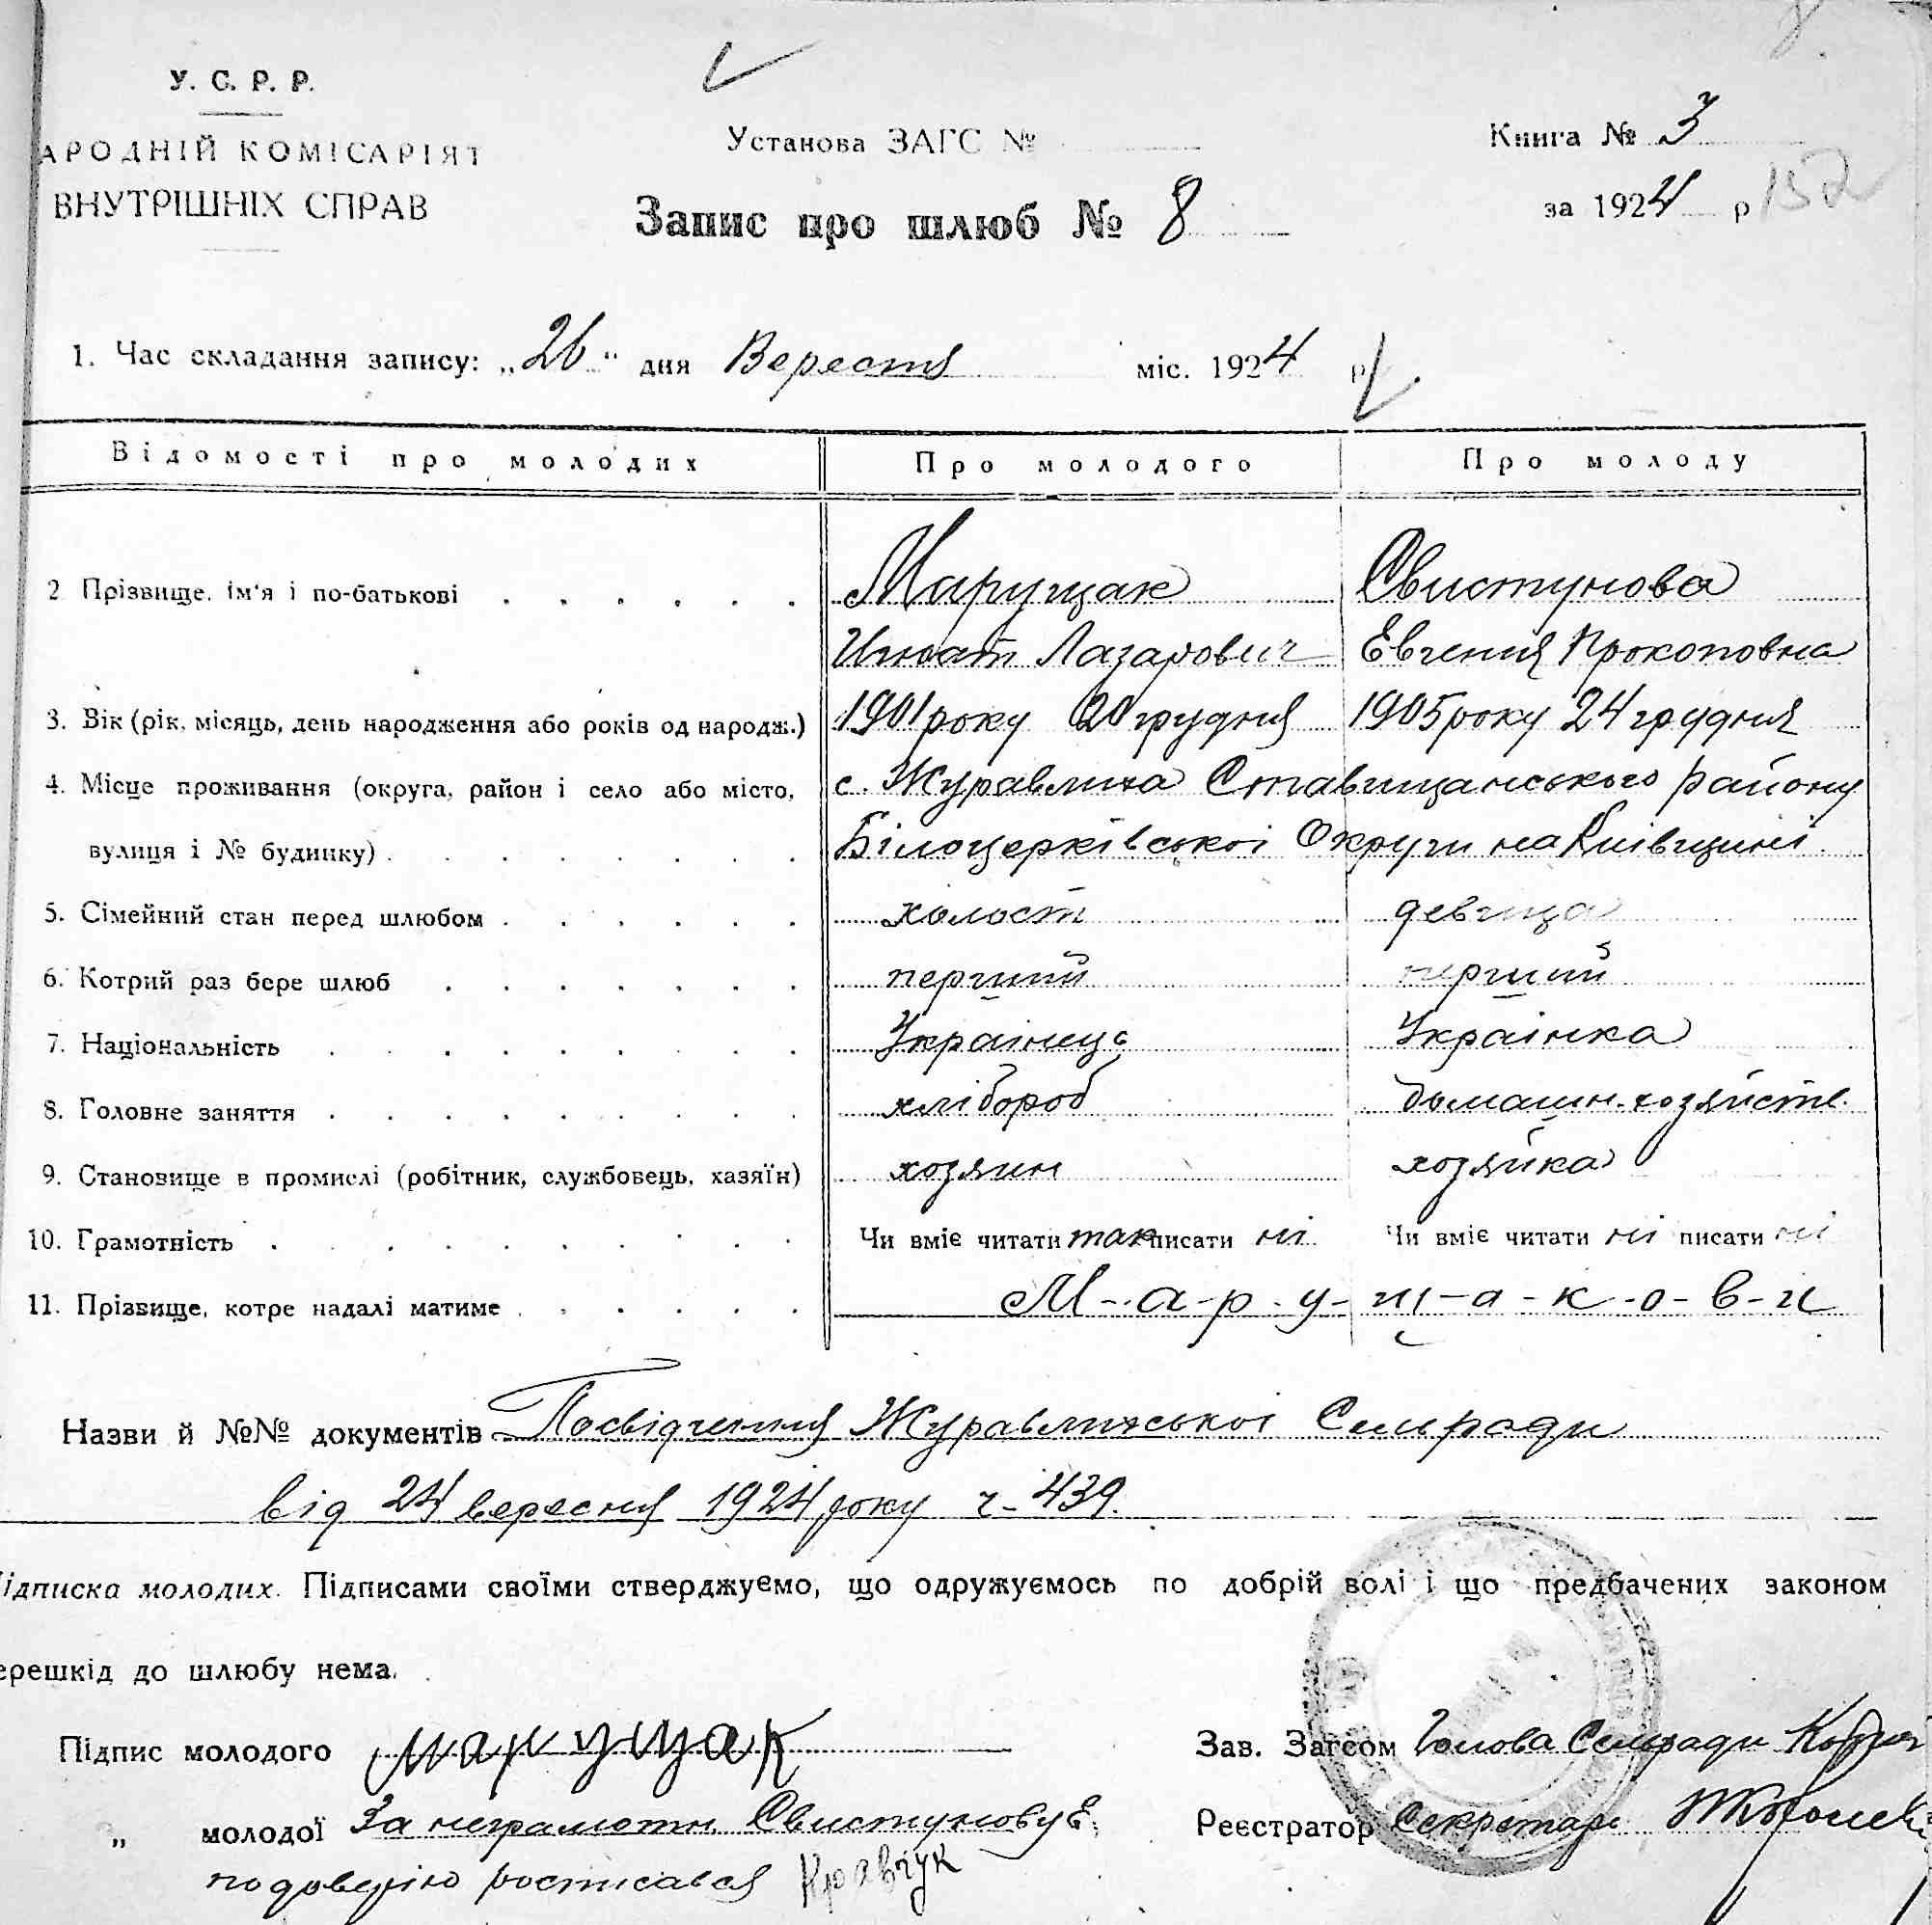 У. С. Р. Р.
АРОДНІЙ КОМІСАРІЯТ
ВНУТРІШНІХ СПРАВ
Установа ЗАГС №
Книга № 3
за 1924 р
152
Запис про шлюб № 8
1. Час складання запису: „26“ дня Вересня міс. 1924 р
Відомості про молодих Про молодого Про молоду
2 Прізвище, ім'я і по-батькові Марущак Свистунова
Игнат Лазарович Евгения Прокоповна
3. Вік (рік, місяць, день народження або років од народж.) 1901 року 20 грудня 1905 року 24 грудня
4. Місце проживання (округа, район і село або місто, с. Журавлиха Ставищанського району
вулиця і № будинку) Білоцерківської Округи на Київщині
5. Сімейний стан перед шлюбом холост девица
6. Котрий раз бере шлюб перший перший
7. Національність Українець Українка
8. Головне заняття хлібороб домашн. хозяйств.
9. Становище в промислі (робітник, службовець, хазяїн) хозяин хозяйка
10. Грамотність Чи вміє читати так писати ні Чи вміє читати ні писати ні
11. Прізвище, котре надалі матиме М-а-р-у-щ-а-к-о-в-и
Назви й №№ документів Посвідчення Журавлихської Сельради
від 24 вересня 1924 року ч- 439.
ідписка молодих. Підписами своїми стверджуємо, що одружуємось по добрій волі і що предбачених законом
ерешкід до шлюбу нема.
Підпис молодого Марущак Зав. Загсом Голова Сельради
„ молодої За неграмотн. Свистунову Е. Реєстратор Секретарь
по доверію росписався Кравчук